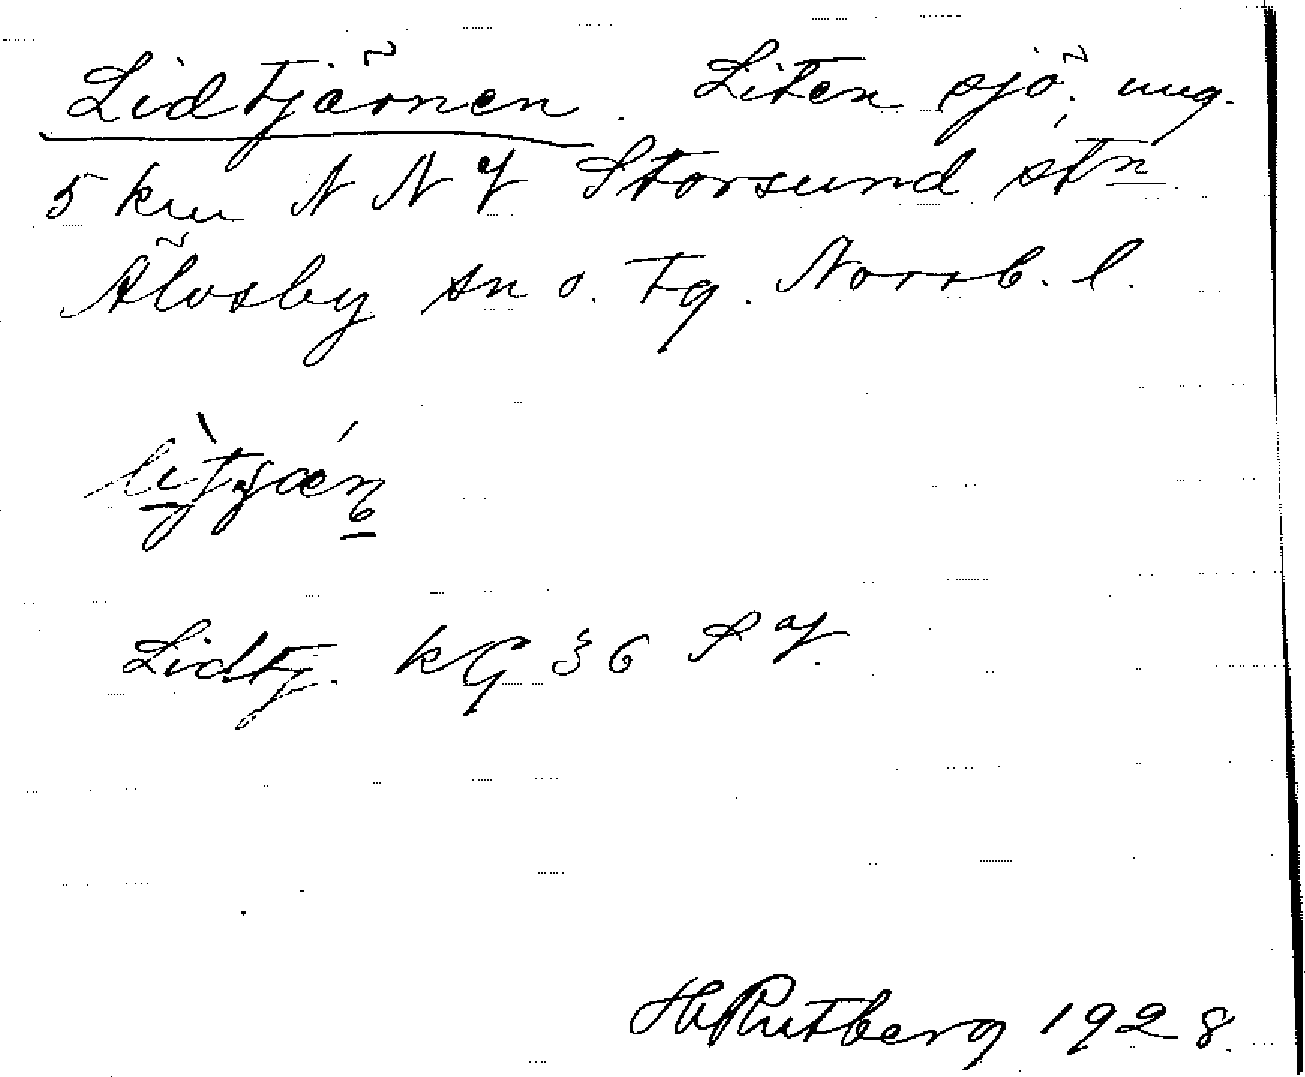 Lidtjärnen. Liten sjö, ung.
5 km NNV Storsund stn
Älvsby sn o. tg. Norrb. l.
Lidtj. kG 36 SV.
H Rutberg 1928.